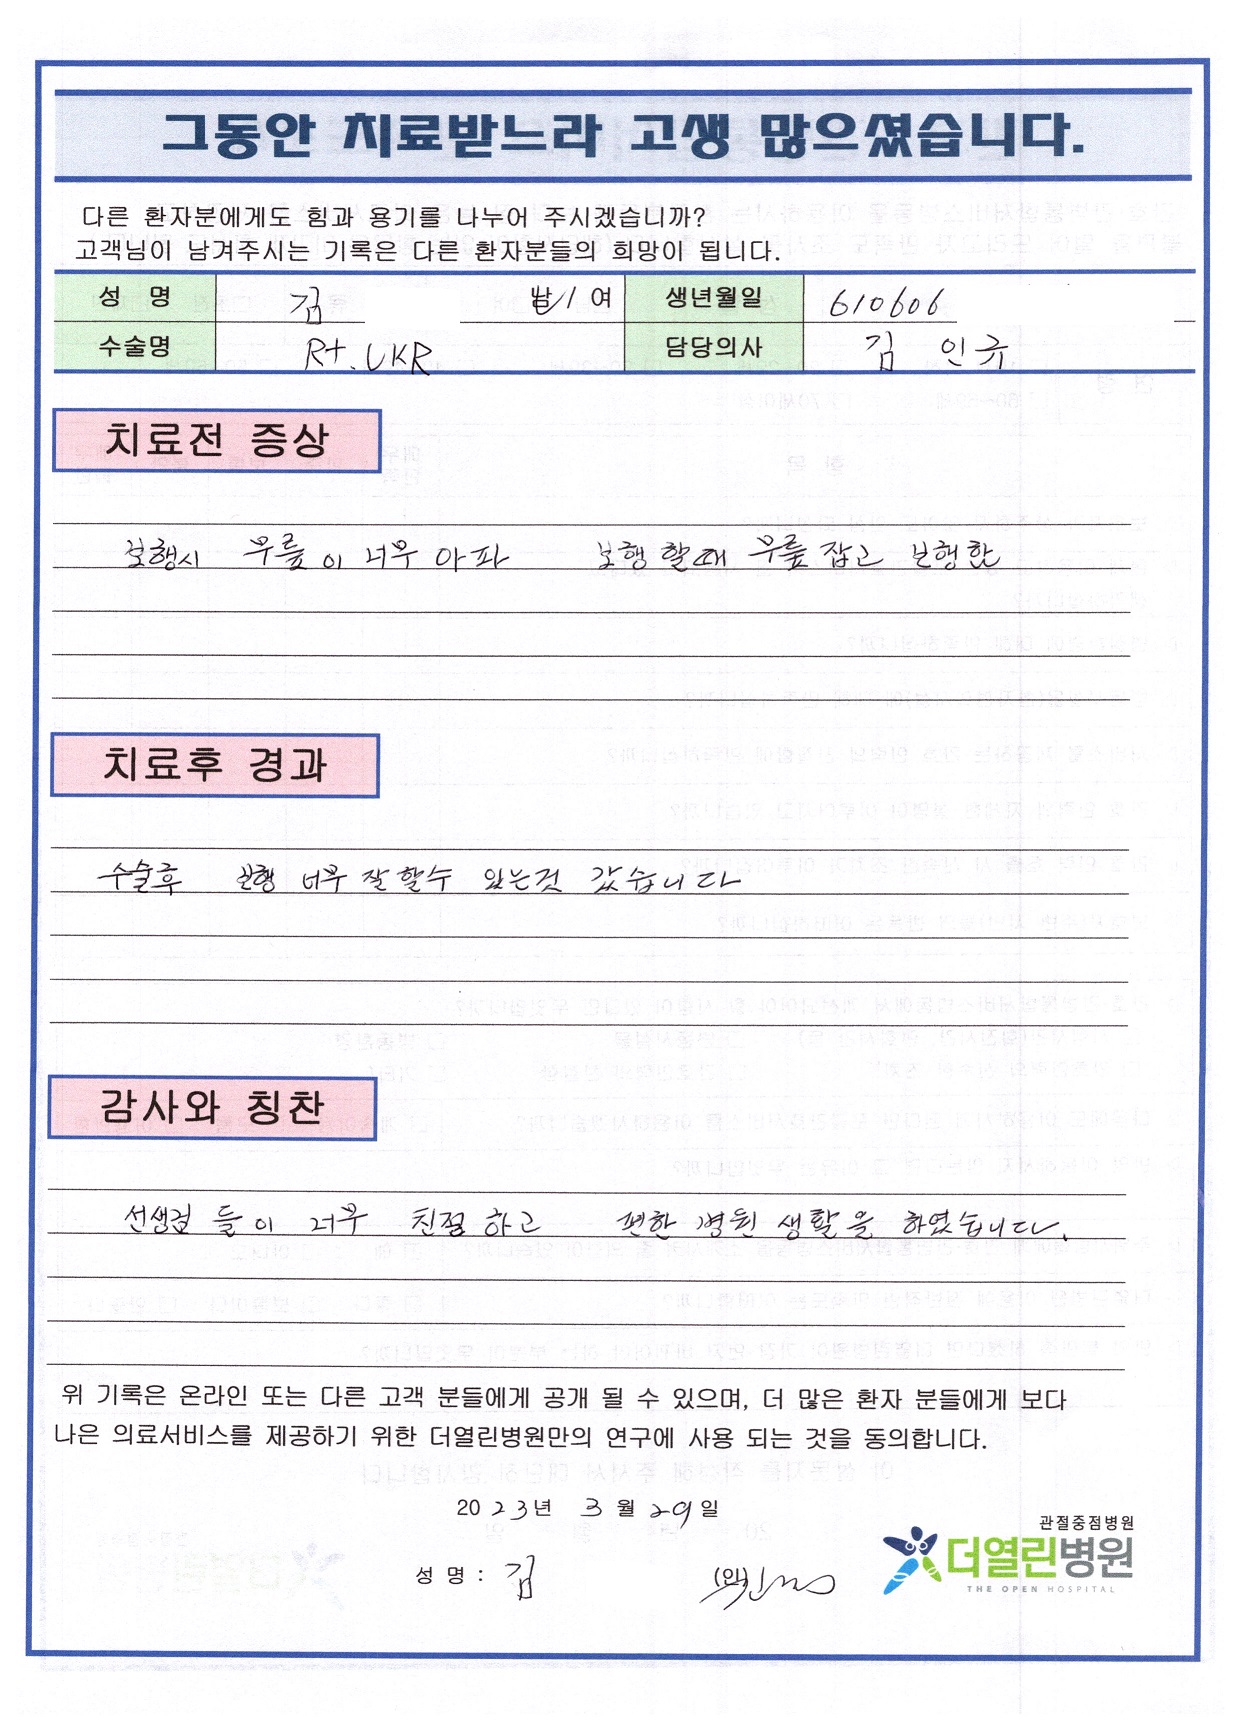 그동안 치료받느라 고생 많으셨습니다.
다른 환자분에게도 힘과 용기를 나누어 주시겠습니까?
고객님이 남겨주시는 기록은 다른 환자분들의 희망이 됩니다.
성 명 김 남 / 여 생년월일 610606
수술명 Rt. UKR 담당의사 김 인규
치료전 증상
보행시 무릎이 너무 아파 보행 할때 무릎 잡고 보행함
치료후 경과
수술후 보행 너무 잘 할수 있는것 갔습니다
감사와 칭찬
선생님 들이 너무 친절 하고 편한 병원 생활을 하였습니다.
위 기록은 온라인 또는 다른 고객 분들에게 공개 될 수 있으며, 더 많은 환자 분들에게 보다
나은 의료서비스를 제공하기 위한 더열린병원만의 연구에 사용 되는 것을 동의합니다.
2023년 3월 29일
성 명 : 김 (인)
관절중점병원
더열린병원
THE OPEN HOSPITAL